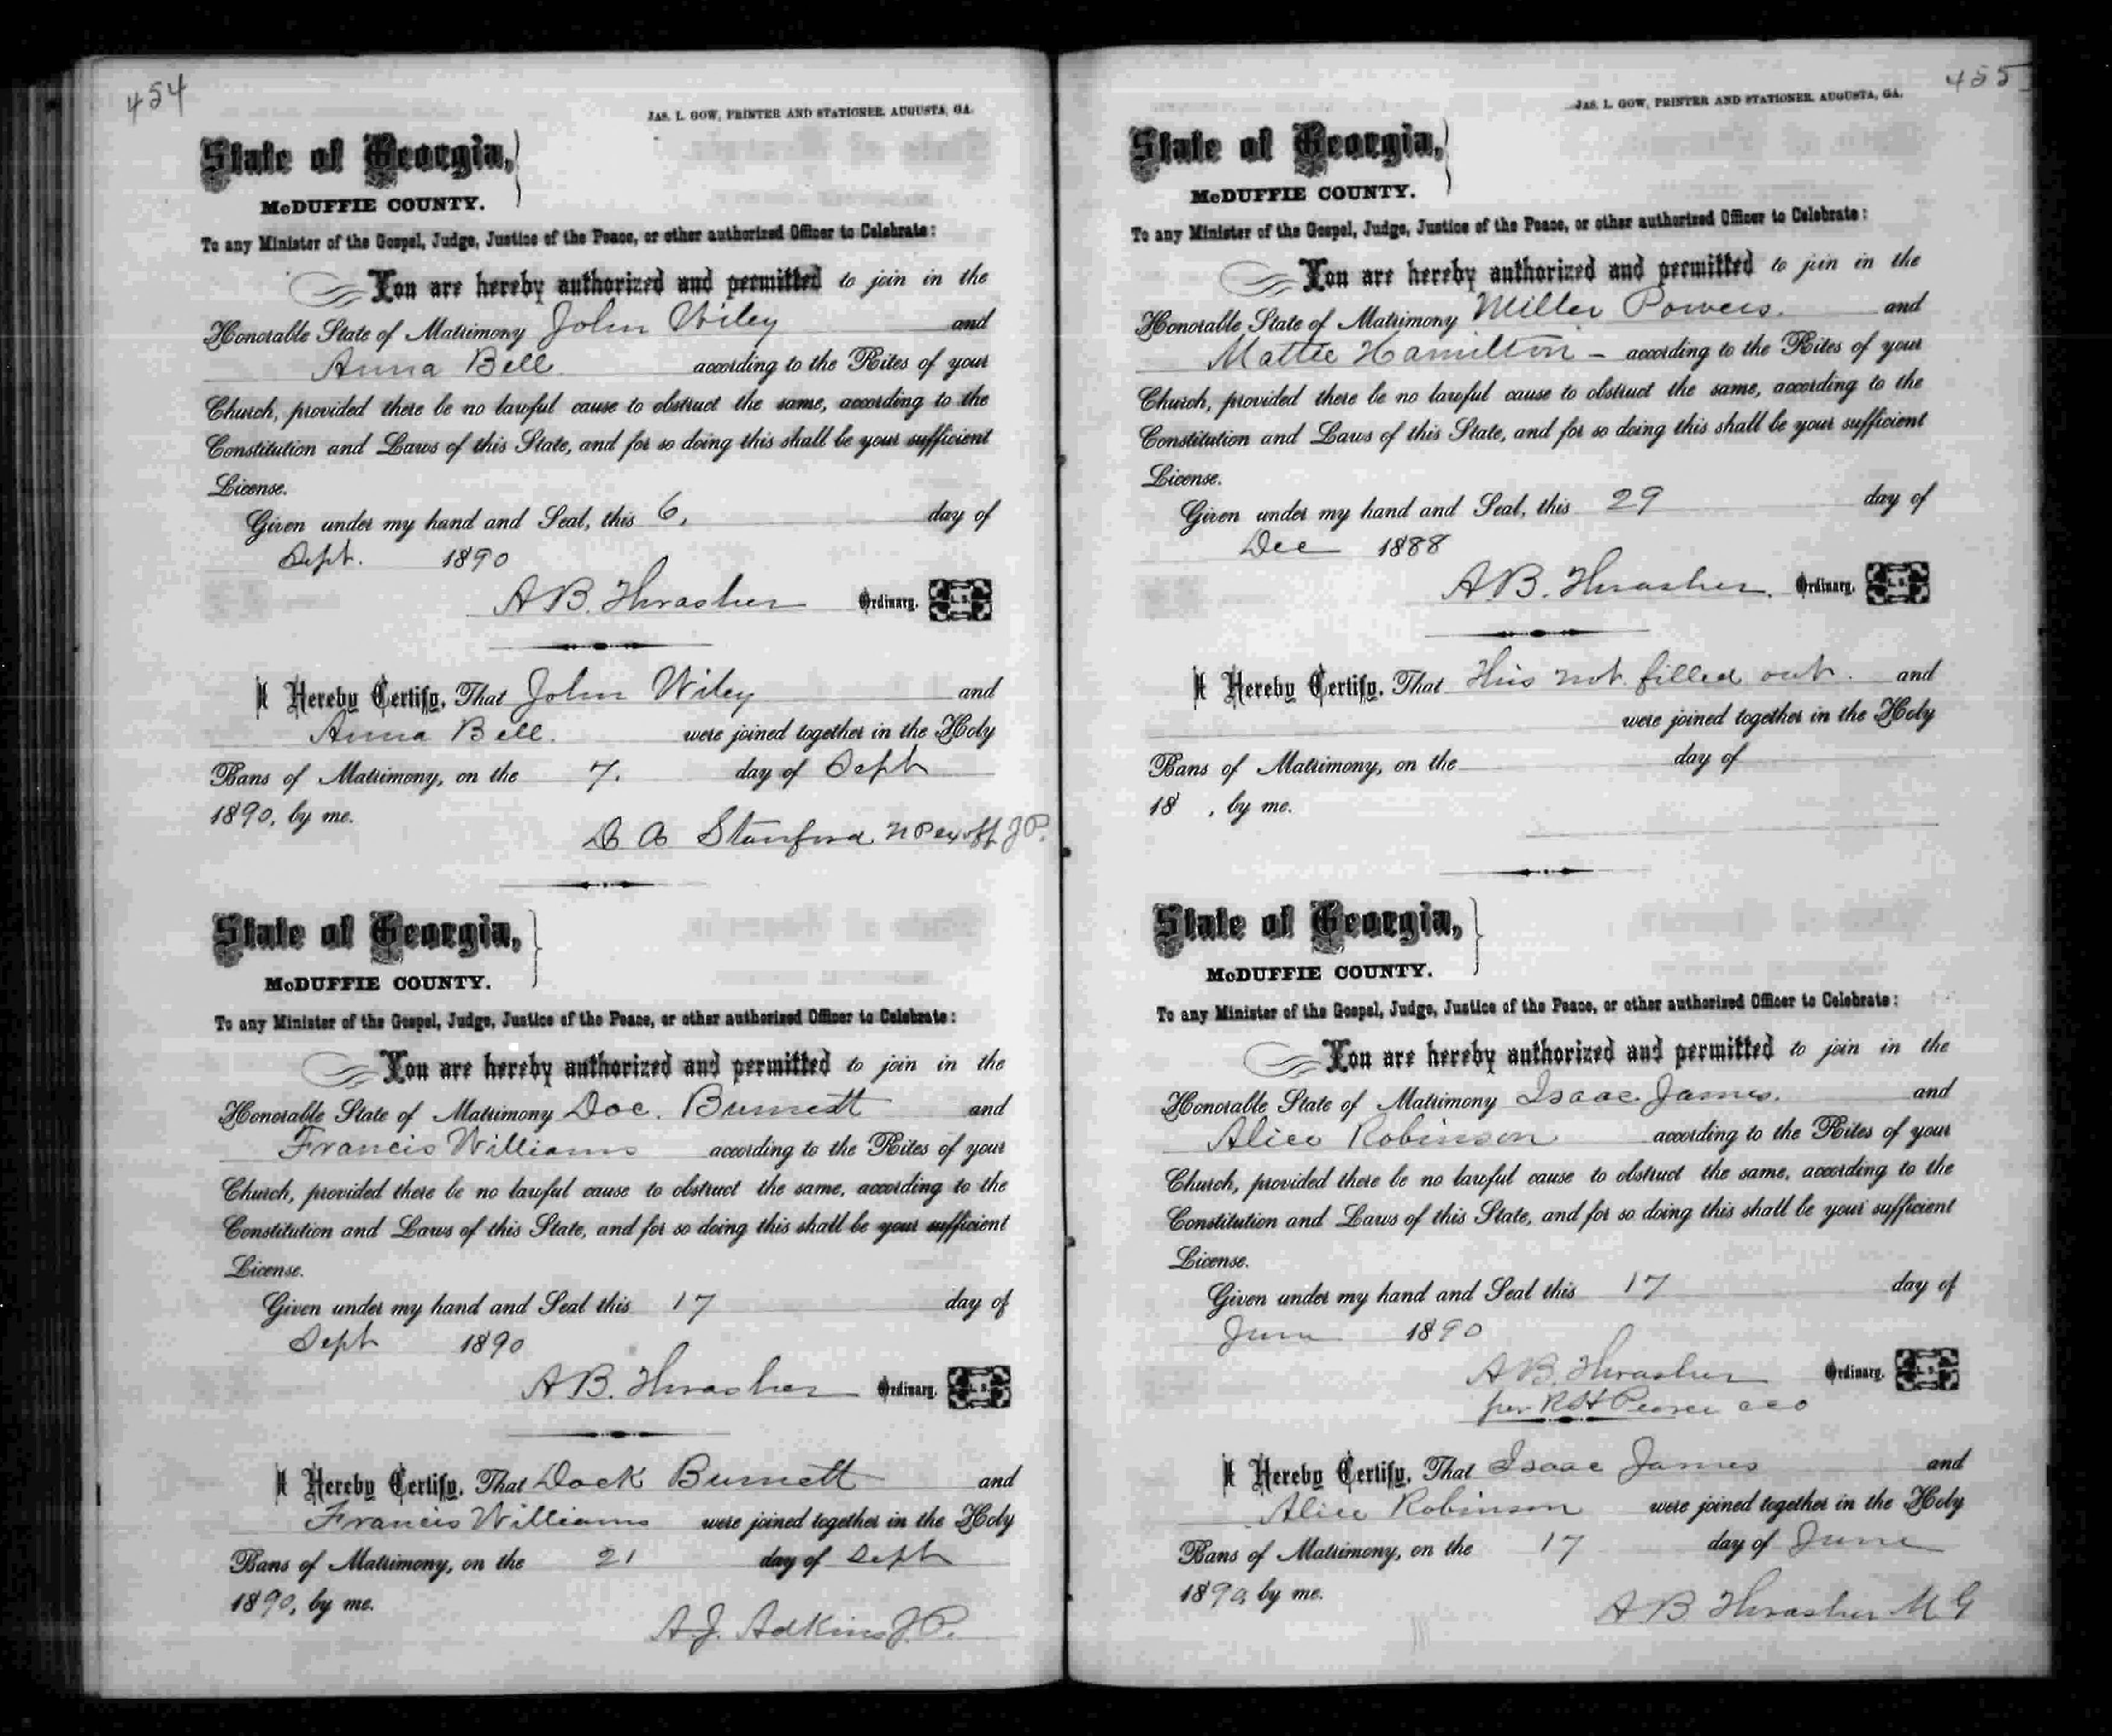 454
JAS. L. GOW, PRINTER AND STATIONER, AUGUSTA, GA.
State of Georgia,
McDUFFIE COUNTY.
To any Minister of the Gospel, Judge, Justice of the Peace, or other authorized Officer to Celebrate:
You are hereby authorized and permitted to join in the
Honorable State of Matrimony John Wiley and
Anna Bell according to the Rites of your
Church, provided there be no lawful cause to obstruct the same, according to the
Constitution and Laws of this State, and for so doing this shall be your sufficient
License.
Given under my hand and Seal, this 6, day of
Sept. 1890
A B. Thrasher Ordinary. L. S.
I Hereby Certify, That John Wiley and
Anna Bell. were joined together in the Holy
Bans of Matrimony, on the 7. day of Sept
1890, by me.
Stanford N P ex off J P.
State of Georgia,
McDUFFIE COUNTY.
To any Minister of the Gospel, Judge, Justice of the Peace, or other authorized Officer to Celebrate:
You are hereby authorized and permitted to join in the
Honorable State of Matrimony Doc. Burnett and
Francis Williams according to the Rites of your
Church, provided there be no lawful cause to obstruct the same, according to the
Constitution and Laws of this State, and for so doing this shall be your sufficient
License.
Given under my hand and Seal this 17 day of
Sept 1890
A B. Thrasher Ordinary. L. S.
I Hereby Certify, That Dock Burnett and
Francis Williams were joined together in the Holy
Bans of Matrimony, on the 21 day of Sept
1890, by me.
A. J. Adkins J. P.
455
JAS. L. GOW, PRINTER AND STATIONER, AUGUSTA, GA.
State of Georgia,
McDUFFIE COUNTY.
To any Minister of the Gospel, Judge, Justice of the Peace, or other authorized Officer to Celebrate:
You are hereby authorized and permitted to join in the
Honorable State of Matrimony Miller Powers. and
Mattie Hamilton - according to the Rites of your
Church, provided there be no lawful cause to obstruct the same, according to the
Constitution and Laws of this State, and for so doing this shall be your sufficient
License.
Given under my hand and Seal, this 29 day of
Dec 1888
A. B. Thrasher. Ordinary. L. S.
I Hereby Certify, That This not filled out. and
were joined together in the Holy
Bans of Matrimony, on the day of
18 , by me.
State of Georgia,
McDUFFIE COUNTY.
To any Minister of the Gospel, Judge, Justice of the Peace, or other authorized Officer to Celebrate:
You are hereby authorized and permitted to join in the
Honorable State of Matrimony Isaac James. and
Alice Robinson according to the Rites of your
Church, provided there be no lawful cause to obstruct the same, according to the
Constitution and Laws of this State, and for so doing this shall be your sufficient
License.
Given under my hand and Seal this 17 day of
June 1890
A B. Thrasher Ordinary. L. S.
per R H Pearce
I Hereby Certify, That Isaac James and
Alice Robinson were joined together in the Holy
Bans of Matrimony, on the 17 day of June
1890, by me.
A B Thrasher M G